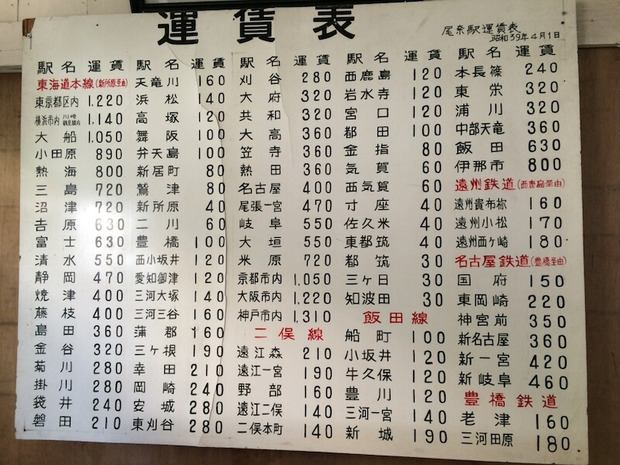 運賃表
尾奈駅運賃表
昭和39年4月1日
駅名 運賃
東海道本線(新所原経由)
東京都区内 1.220
横浜市内 1.140
大船 1.050
小田原 890
熱海 800
三島 720
沼津 720
吉原 630
富士 630
清水 550
静岡 470
焼津 400
藤枝 400
島田 360
金谷 320
菊川 280
掛川 280
袋井 240
磐田 210
駅名 運賃
天竜川 160
浜松 140
高塚 120
舞阪 100
弁天島 100
新居町 80
鷲津 80
新所原 40
二川 60
豊橋 100
西小坂井 120
愛知御津 120
三河大塚 140
三河三谷 160
蒲郡 160
三ヶ根 190
幸田 210
岡崎 240
安城 280
東刈谷 280
駅名 運賃
刈谷 280
大府 320
共和 320
大高 360
笠寺 360
熱田 360
名古屋 400
尾張一宮 470
岐阜 550
大垣 550
米原 720
京都市内 1.050
大阪市内 1.220
神戸市内 1.310
二俣線
遠江森 210
遠江一宮 190
野部 160
遠江二俣 140
二俣本町 140
駅名 運賃
西鹿島 120
岩水寺 120
宮口 120
都田 100
金指 80
気賀 60
西気賀 60
寸座 40
佐久米 40
東都筑 40
都筑 30
三ヶ日 30
知波田 30
飯田線
船町 100
小坂井 120
牛久保 120
豊川 120
三河一宮 140
新城 190
駅名 運賃
本長篠 240
東栄 320
浦川 320
中部天竜 360
飯田 630
伊那市 800
遠州鉄道(西鹿島経由)
遠州貴布祢 160
遠州小松 170
遠州西ヶ崎 180
名古屋鉄道(豊橋経由)
国府 150
東岡崎 220
神宮前 350
新名古屋 360
新一宮 420
新岐阜 460
豊橋鉄道
老津 160
三河田原 180